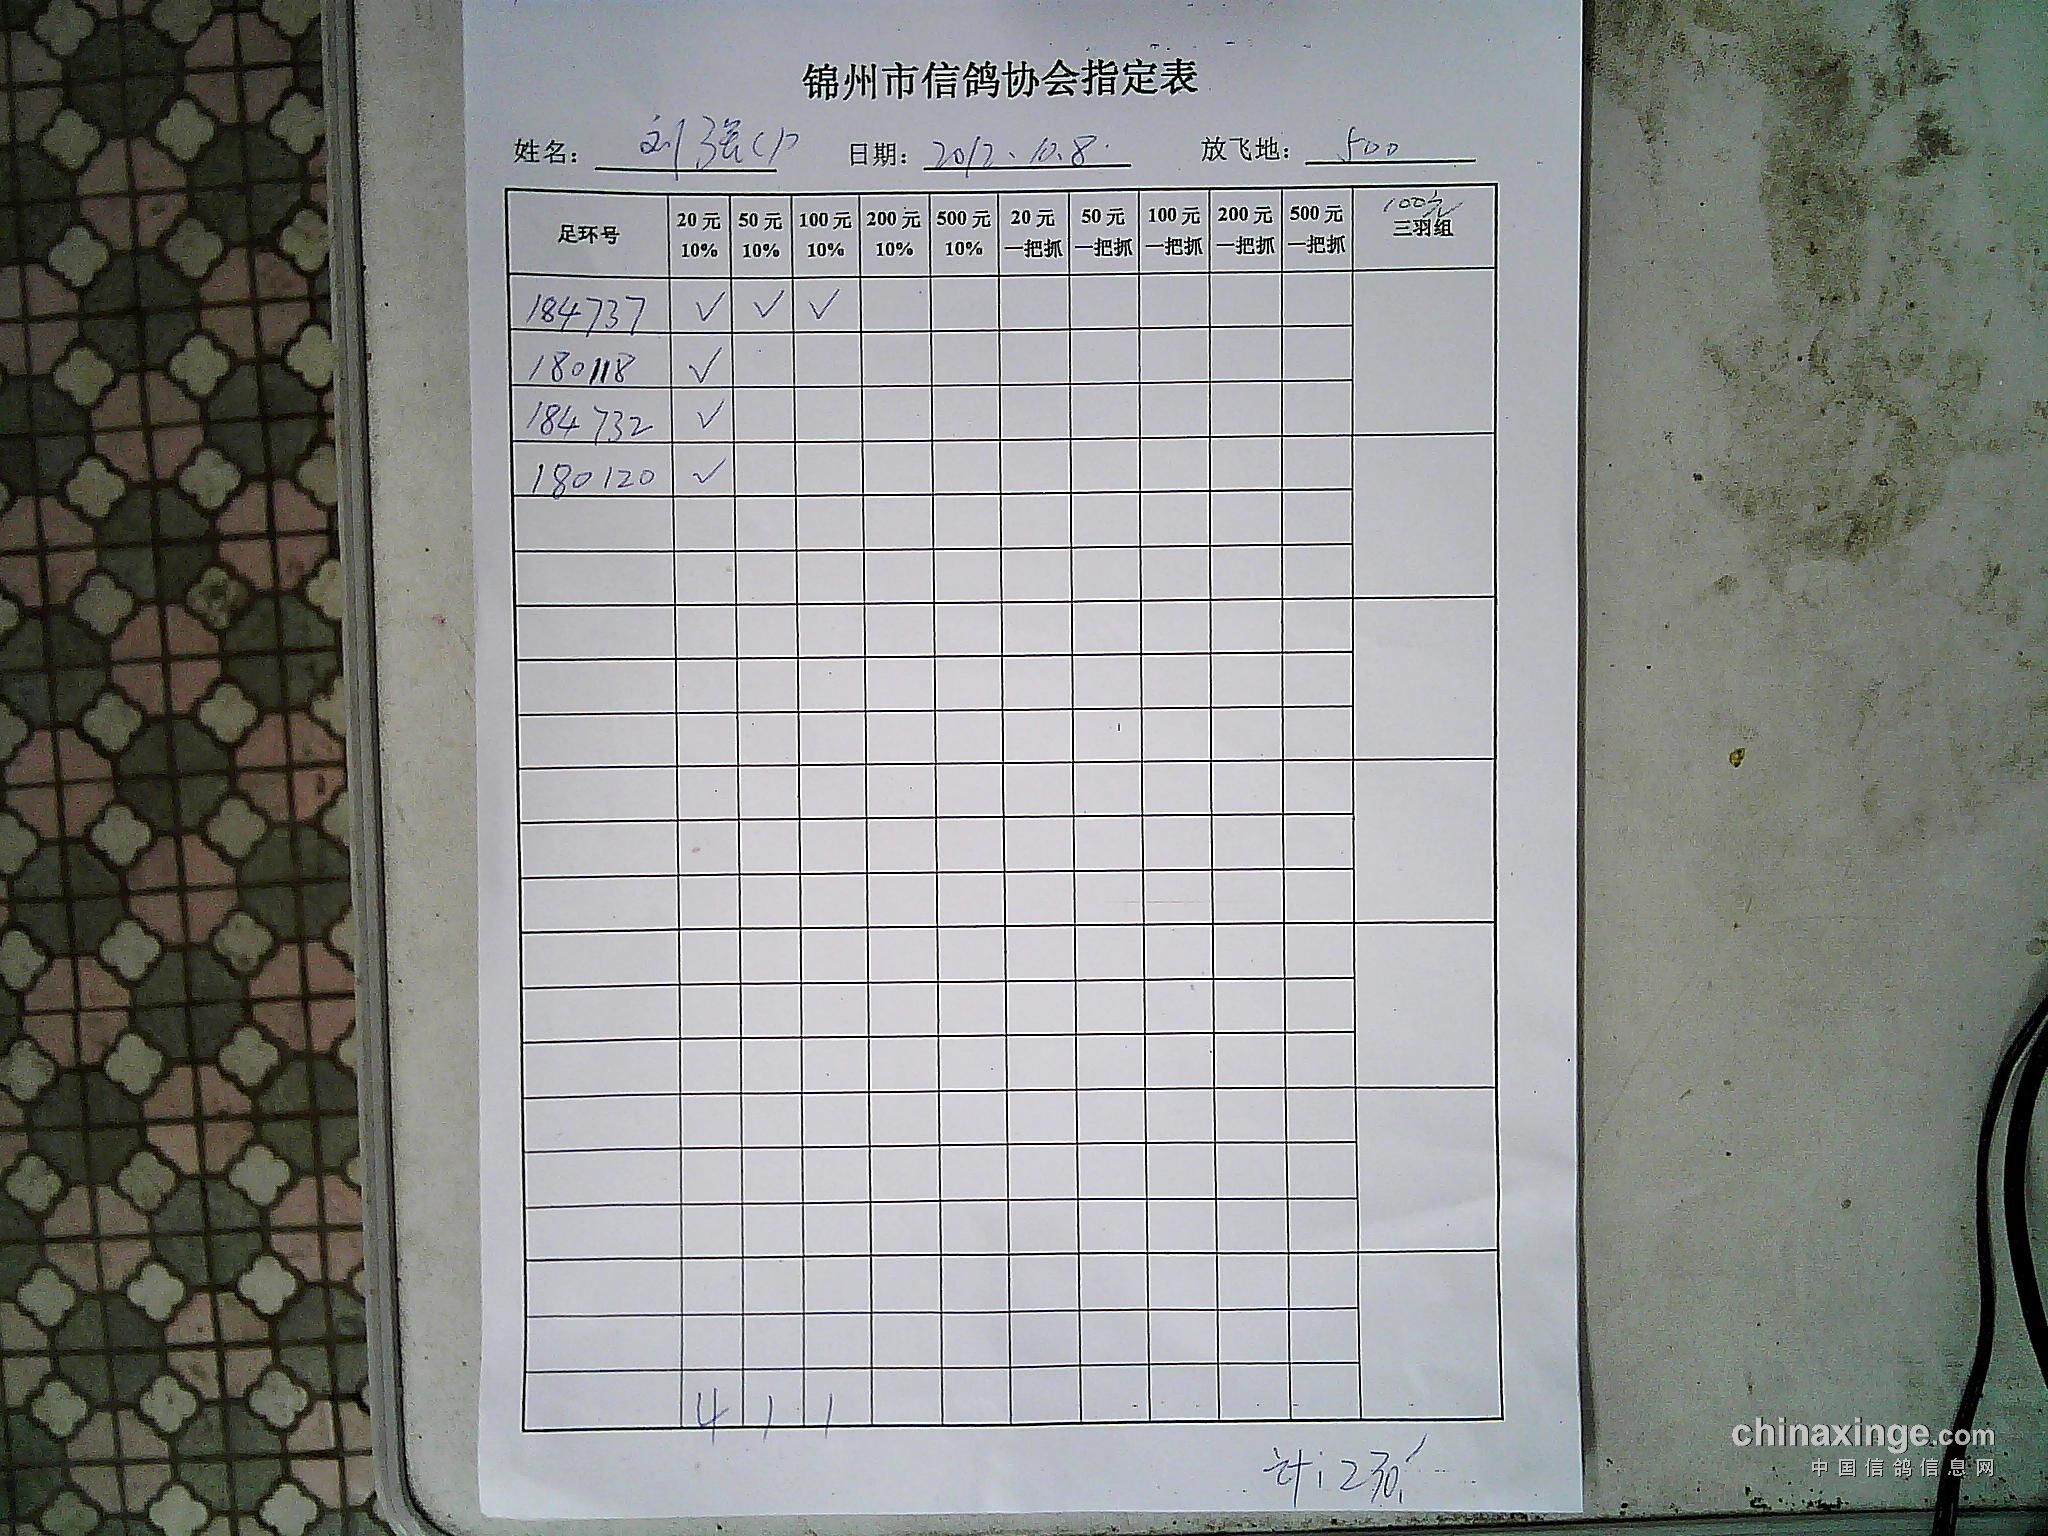 锦州市信鸽协会指定表
姓名： 刘强(小) 日期： 2012.10.8. 放飞地： 500
足环号 20元 10% 50元 10% 100元 10% 200元 10% 500元 10% 20元 一把抓 50元 一把抓 100元 一把抓 200元 一把抓 500元 一把抓 100元 三羽组
184737 ✓ ✓ ✓
180118 ✓
184732 ✓
180120 ✓
4 1 1
计：230.
chinaxinge.com
中国信鸽信息网